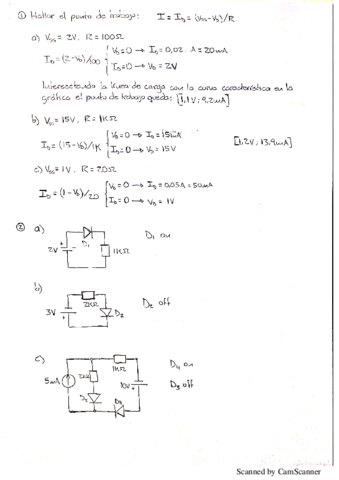 ① Hallar el punto de trabajo: I = I_D = (V_SS - V_D)/R
a) V_SS = 2V, R = 100Ω
I_D = (2-V_D)/100 { V_D = 0 → I_D = 0,02 A = 20mA
I_D = 0 → V_D = 2V
Intersectando la línea de carga con la curva característica en la
gráfica el punto de trabajo queda: [1,1V; 9,2mA]
b) V_SS = 15V, R = 1KΩ
I_D = (15-V_D)/1K { V_D = 0 → I_D = 15mA
I_D = 0 → V_D = 15V
[1,2V; 13,9mA]
c) V_SS = 1V, R = 20Ω
I_D = (1-V_D)/20 { V_D = 0 → I_D = 0,05A = 50mA
I_D = 0 → V_D = 1V
② a)
D1 on
D1
2V
1KΩ
b)
2KΩ
D2 off
3V
D2
c)
1KΩ
D4 on
5mA
2KΩ
10V
D3 off
D4
Scanned by CamScanner